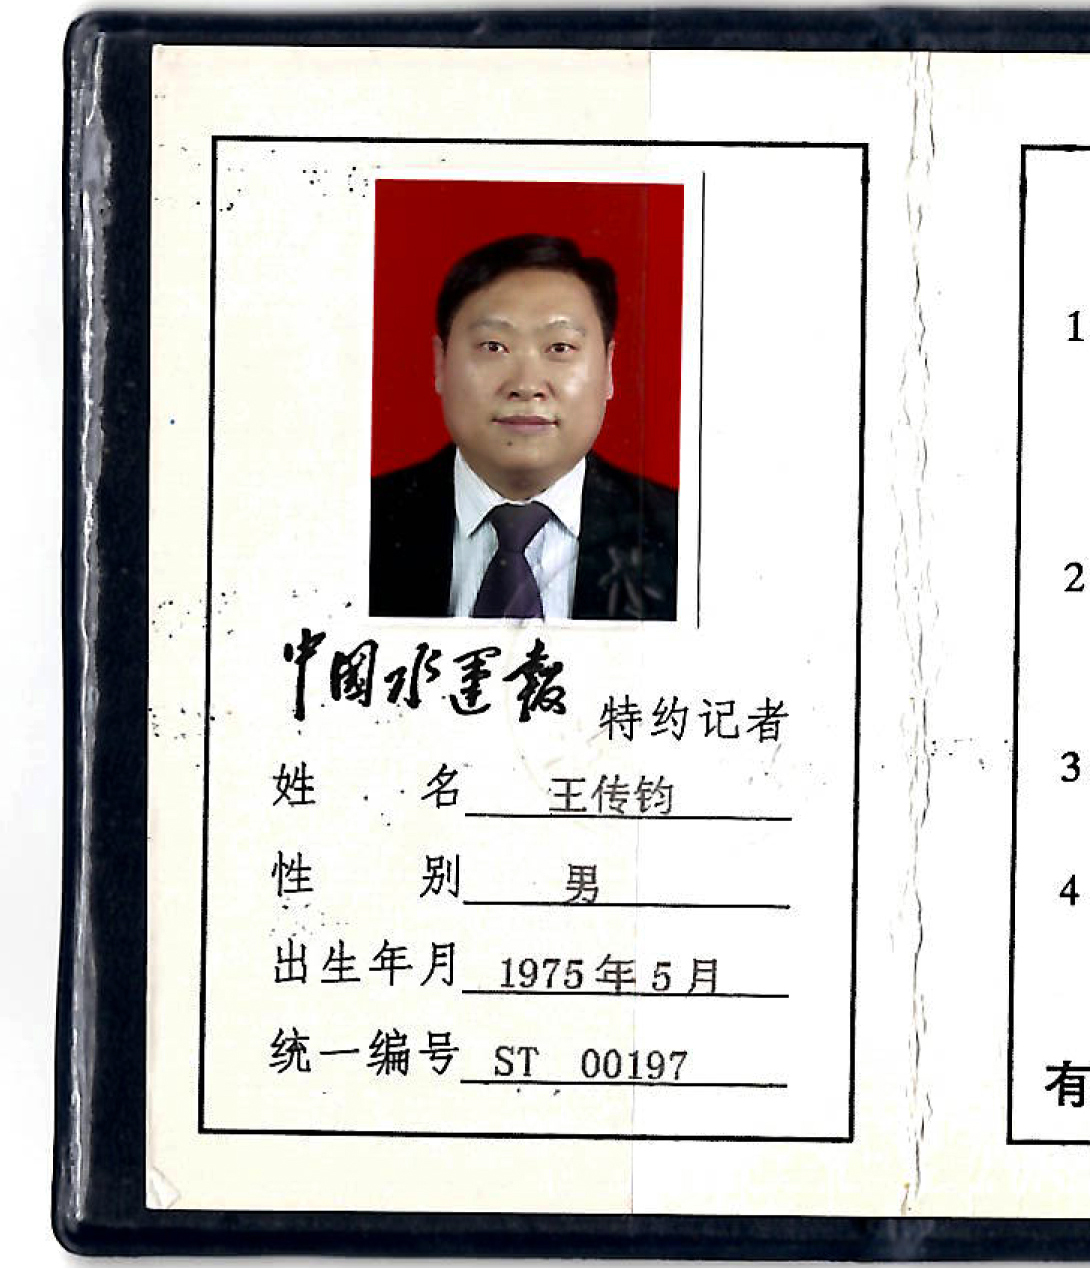 中国水运報 特约记者
姓名 王传钧
性别 男
出生年月 1975年5月
统一编号 ST 00197
1
2
3
4
有